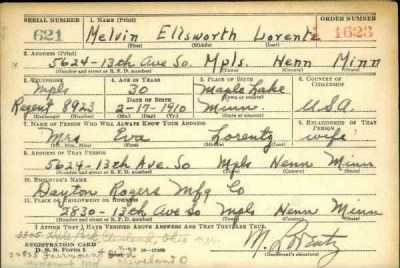 SERIAL NUMBER 1. NAME (Print) ORDER NUMBER
621 Melvin Ellsworth Lorentz 1623
(First) (Middle) (Last)
2. ADDRESS (Print)
5624-13th Ave So. Mpls. Henn Minn
(Number and street or R. F. D. number) (Town) (County) (State)
3. TELEPHONE 4. AGE IN YEARS 5. PLACE OF BIRTH 6. COUNTRY OF CITIZENSHIP
Mpls 30 Maple Lake
DATE OF BIRTH (Town or county)
Regent 8923 2-17-1910 Minn. U.S.A.
(Exchange) (Number) (Mo.) (Day) (Yr.) (State or country)
7. NAME OF PERSON WHO WILL ALWAYS KNOW YOUR ADDRESS 8. RELATIONSHIP OF THAT PERSON
Mrs Eva Lorentz wife
(Mr., Mrs., Miss) (First) (Middle) (Last)
9. ADDRESS OF THAT PERSON
5624-13th Ave. So Mpls Henn Minn
(Number and street or R. F. D. number) (Town) (County) (State)
10. EMPLOYER'S NAME
Dayton Rogers Mfg Co
11. PLACE OF EMPLOYMENT OR BUSINESS
2830-13th Ave So Mpls Henn Minn
(Number and street or R. F. D. number) (Town) (County) (State)
I AFFIRM THAT I HAVE VERIFIED ABOVE ANSWERS AND THAT THEY ARE TRUE.
Cleveland, Ohio
REGISTRATION CARD
D. S. S. Form 1 M. Lorentz
Fairmount Cleveland O (Registrant's signature)